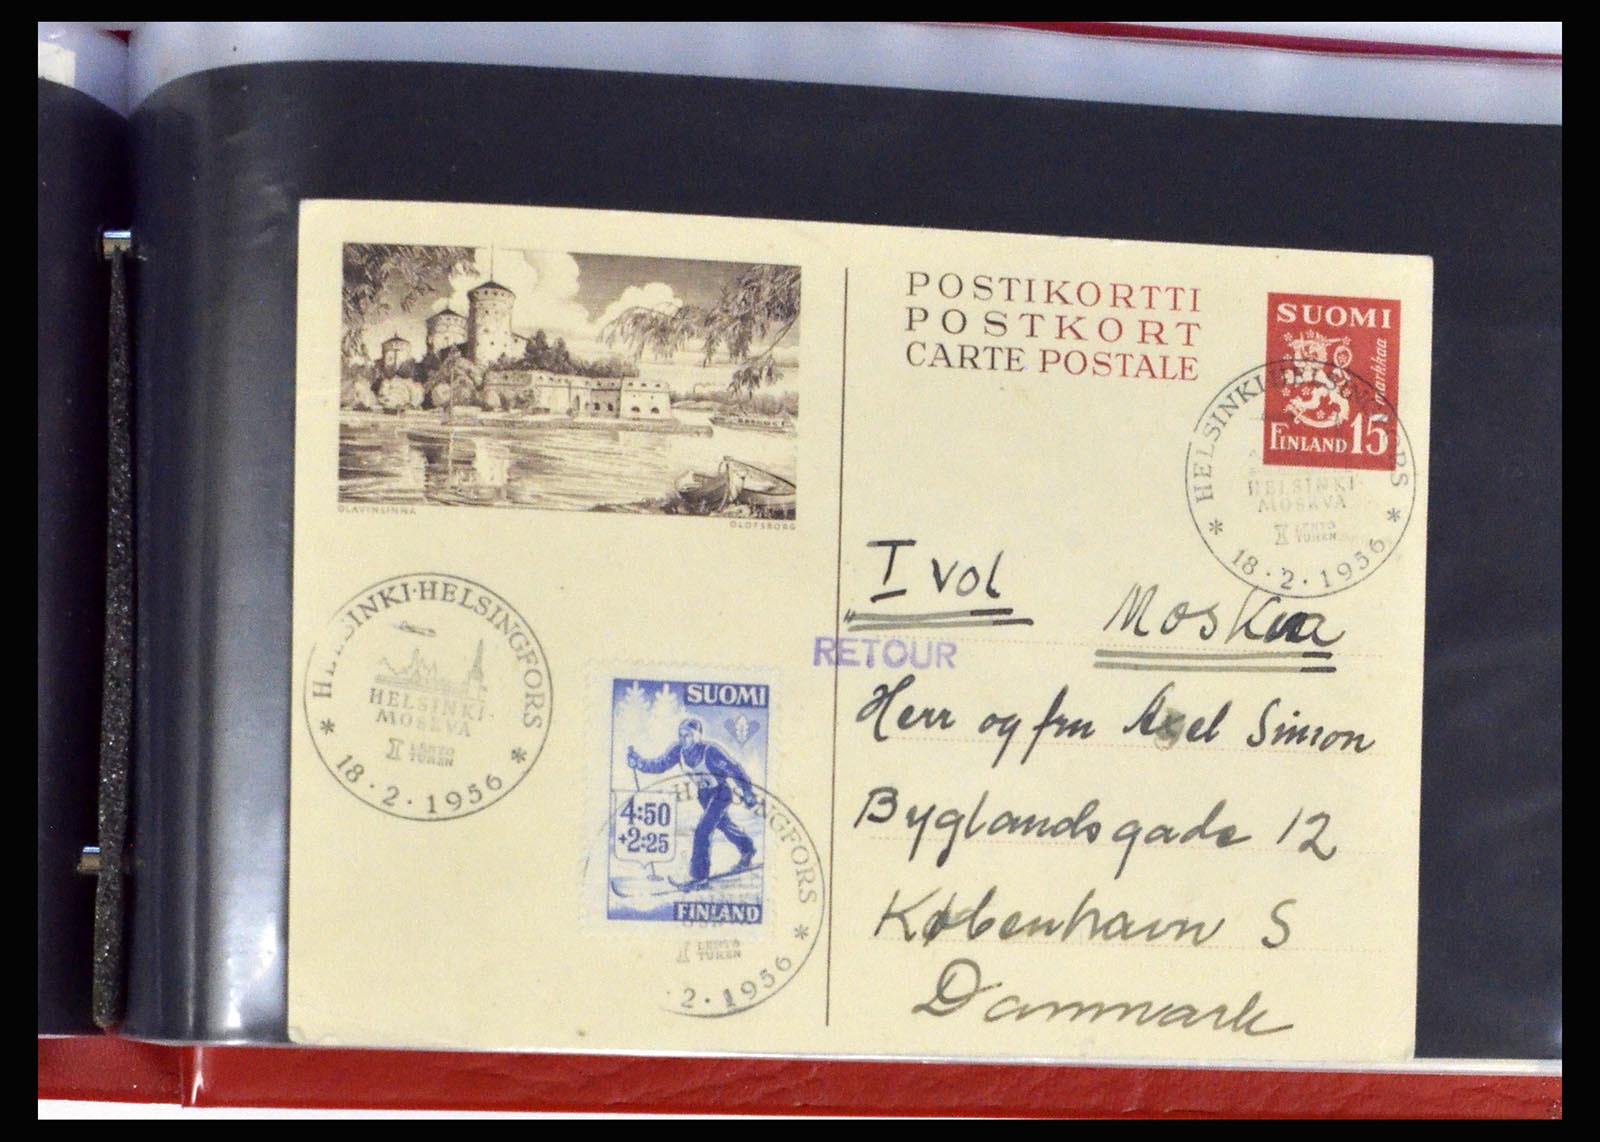 OLAVINLINNA
OLOFSBORG
POSTIKORTTI
POSTKORT
CARTE POSTALE
SUOMI
markkaa
FINLAND 15
HELSINKI·HELSINGFORS
HELSINKI-
MOSKVA
I LENTO
TUREN
* 18.2.1956 *
I vol
Moskva
RETOUR
Herr og fru Axel Simon
Byglandsgade 12
København S
Danmark
HELSINKI·HELSINGFORS
HELSINKI-
MOSKVA
I LENTO
TUREN
* 18.2.1956 *
SUOMI
4:50
+2:25
FINLAND
HELSINGFORS
I LENTO
TUREN
.2.1956 *